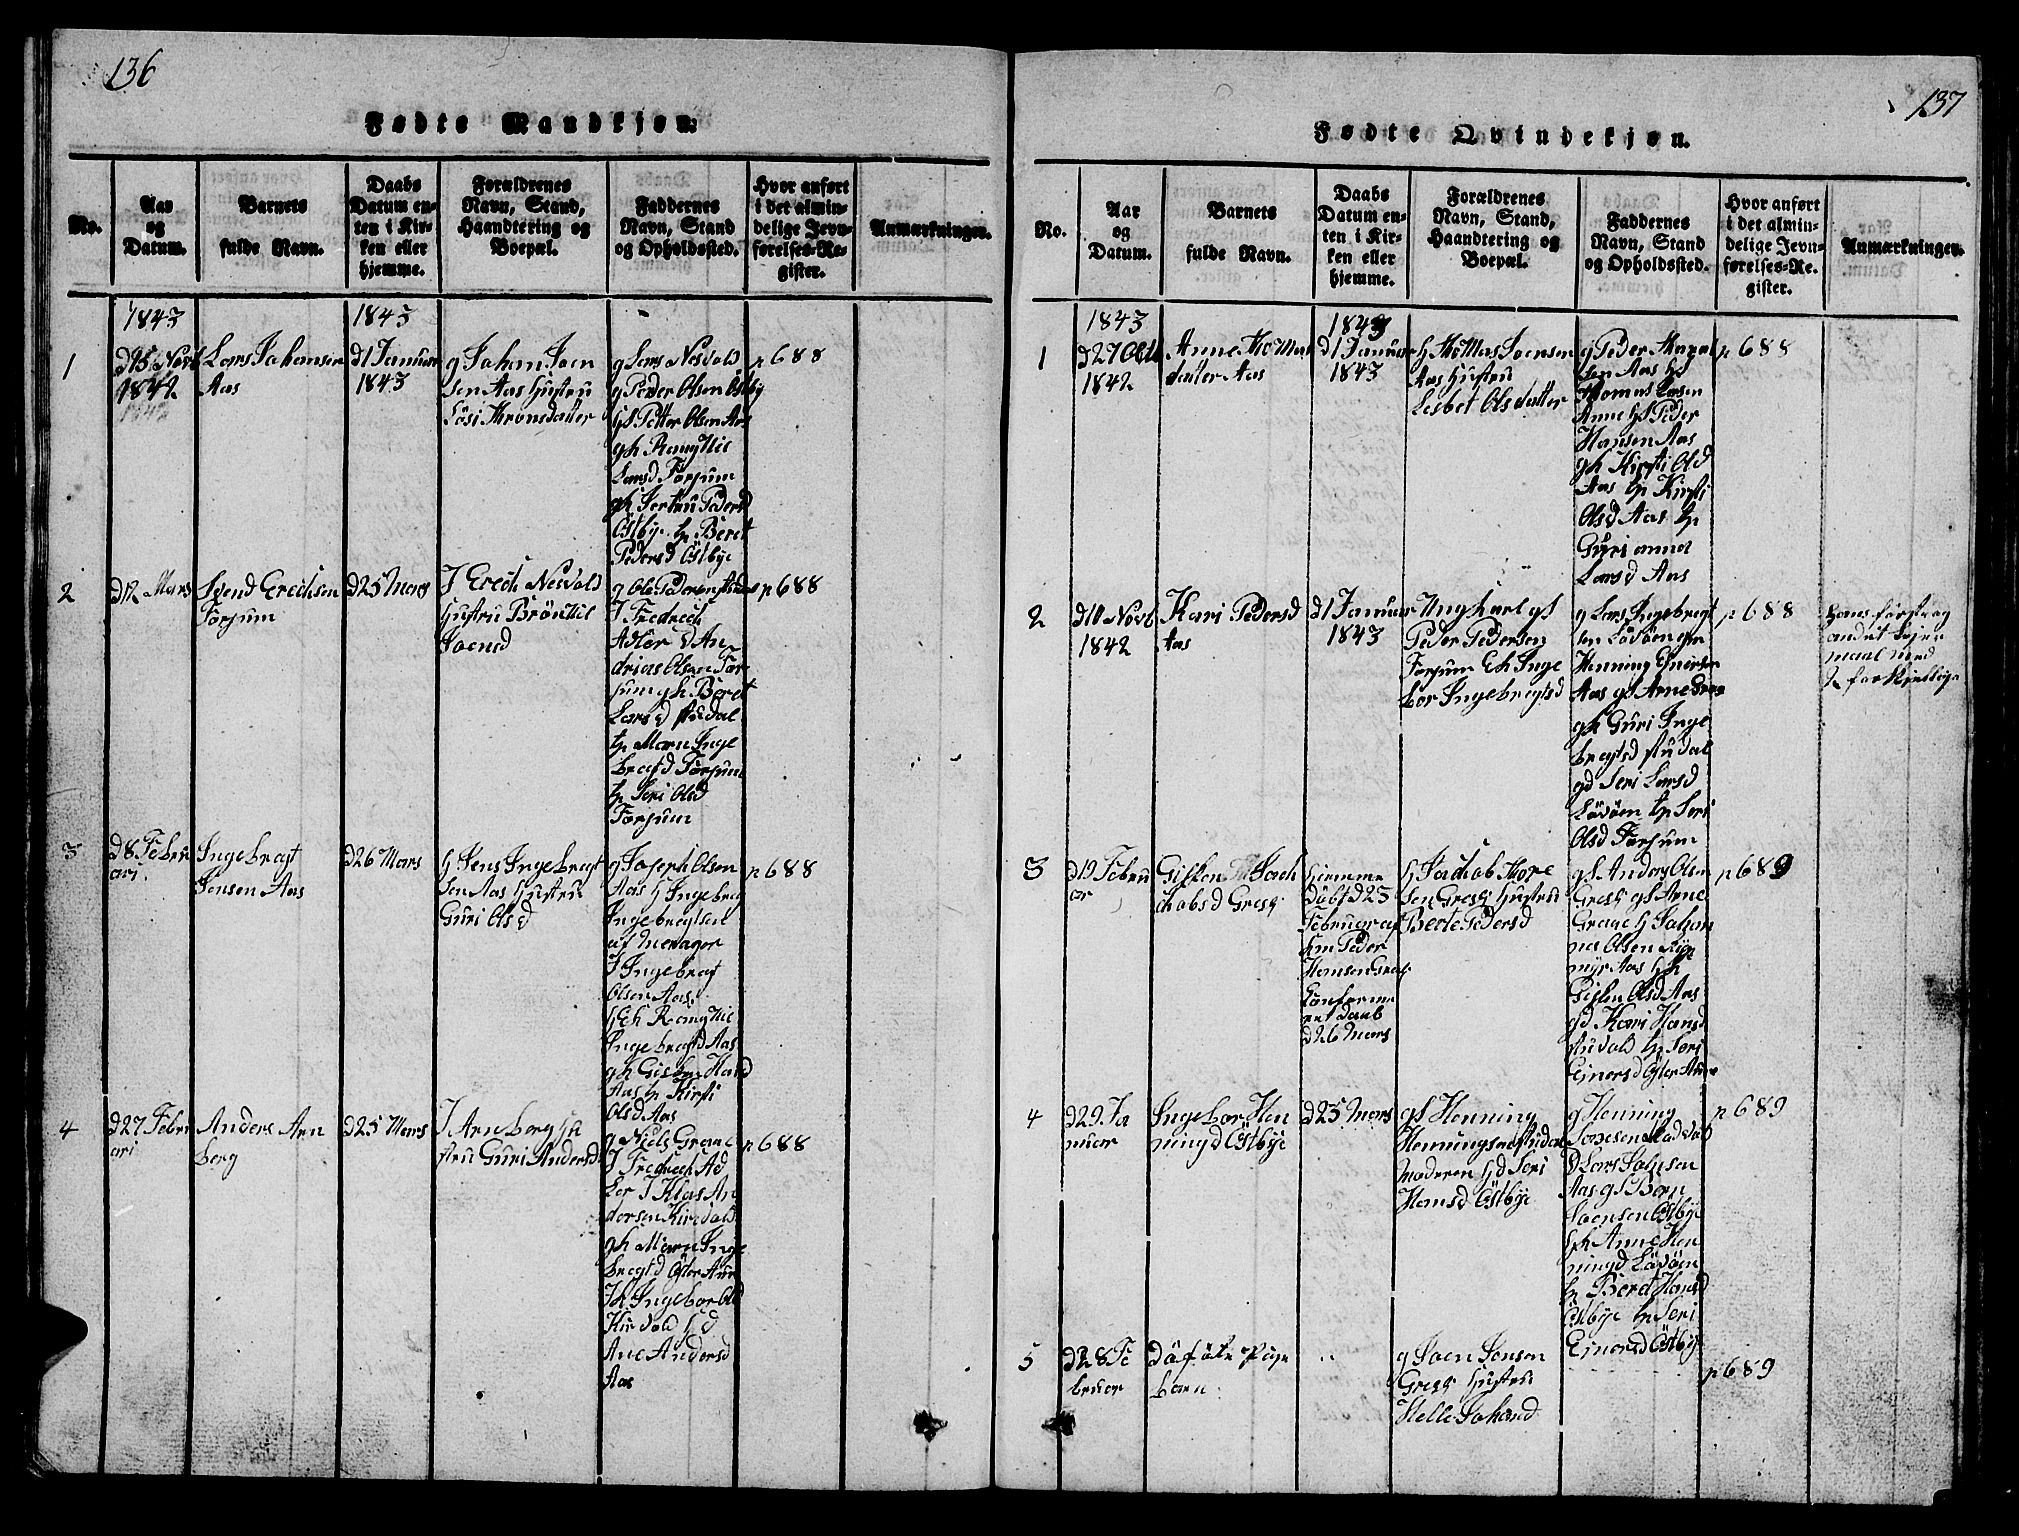 136
Fødte Mandkjøn.
No.
Aar
og
Datum.
Barnets
fulde Navn.
Daabs
Datum en-
ten i Kir-
ken eller
hjemme.
Forældrenes
Navn, Stand,
Haandtering og
Boepæl.
Faddernes
Navn, Stand
og Opholdssted.
Hvor anført
i det almin-
delige Jevn-
førelses-Re-
gister.
Anmærkninger.
1843
1843
1
d25 Novb
1842
Lars Johansen
Aas
d1 Januar
1843
g Johan Joen
sen Aas Hustru
Lisi Aronsdatter
g Lars Nesvold
g Peder Olsen Østby
gS Petter Olsen Aas
gk Ramgnil
Larsd Forsum
gk Jertru Pedersd
Østbye tp Beret
Pedersd Østbye
p 688
2
d12 Mars
Svend Erechsen
Forsum
d25 Mars
J Erech Nesvold
Hustru Brønnil
Joensd
g Ole Pedersen
J Fredrech
Adler d An
drias Olsen For
sum gk Beret
Larsd studal
tp Marn Inge
bragtd Forsum
tp Seri Olsd
Forsum
p 688
3
d8 Febru
ari
Ingebragt
Jensen Aas
d26 Mars
g Jens Ingebragt
sen Aas Hustru
Guri Olsd
g Joseph Olsen
Aas g Ingebrag
Ingebragtsen
af Merager
J Ingebragt
Olsen Aas
gEk Ramgnil
Ingebragtd Aas
gk Gislen Hansd
Aas tp Kirsti
Olsd Aas
p 688
4
d27 Febru
ari
Anders Arn
berg
d25 Mars
J Arnberg Hu
stru Guri Andersd
g Niels Graae
J Fredrech Ad
ler J Klas An
dersen Kirdald
gk Marn Inge
bragtd Øster Aune
Jk Ingebor Old
Kirdald gd
Ane Andersd
Aas
p 688
137
Fødte Qvindekjøn.
No.
Aar
og
Datum.
Barnets
fulde Navn.
Daabs
Datum en-
ten i Kir-
ken eller
hjemme.
Forældrenes
Navn, Stand,
Haandtering og
Boepæl.
Faddernes
Navn, Stand
og Opholdssted.
Hvor anført
i det almin-
delige Jevn-
førelses-Re-
gister.
Anmærkninger.
1843
1843
1
d27 Octb
1842
Anne Thomas
datter Aas
d1 Januar
1843
g Thomas Joensen
Aas Hustru
Lesbet Olsdatter
g Peder
sen Aas gS
Thomas Larsen
Anne gS Peder
Hansen Aas
gk Kirsti Old
Aas tp Kirsti
Olsd Aas tp
Guri anna
Larsd Aas
p 688
2
d10 Novb
1842
Kari Pedersd
Aas
d1 Januar
1843
Ungkarl gS
Peder Pedersen
Forsum Ek Inge
bor Ingebragtsd
g Lars Ingebragt
sen Løvøen gm
Henning Einersen
Aas gS Arne
gk Guri Inge
bragtsd studal
gd Seri Larsd
Løvøen tp Seri
Olsd Forsum
p 688
Hans første og
andet Leier
maal med
2 forskjellige
3
d19 Febru
ar
Gislen Jach
chobsd Gresli
hjemme
døbt d23
Februar af
km Peder
Hansen Graae
Confirme
ret daab
d26 Mars
g Jachob Thore
sen Gresli Hustru
Berte Pedersd
gS Anders Olsen
Gresli gS Arne
Graae g Johan
nes Olsen
myr Aas gk
Gislen Olsd Aas
gd Kari Hansd
studald tp Seri
Einersd Øster Aune
p 689
4
d29 Ja
nuar
Ingebor Hen
ningd Østbye
d25 Mars
gS Henning
Henningsen studal
Moderen gd Seri
Hansd Østbye
g Henning
Joensen
d Lars Jahsen
Aas gS Børn
Joensen Østbye
gk Anne Hen
ningd Løvøen
tp Beret Hansd
Østbye tp Seri
Einersd Østbye
p 689
5
d28 Fe
bruar
Dødføte Pige
barn
g Joen Jonsen
Gresli Hustru
Helle Johansd
p 689